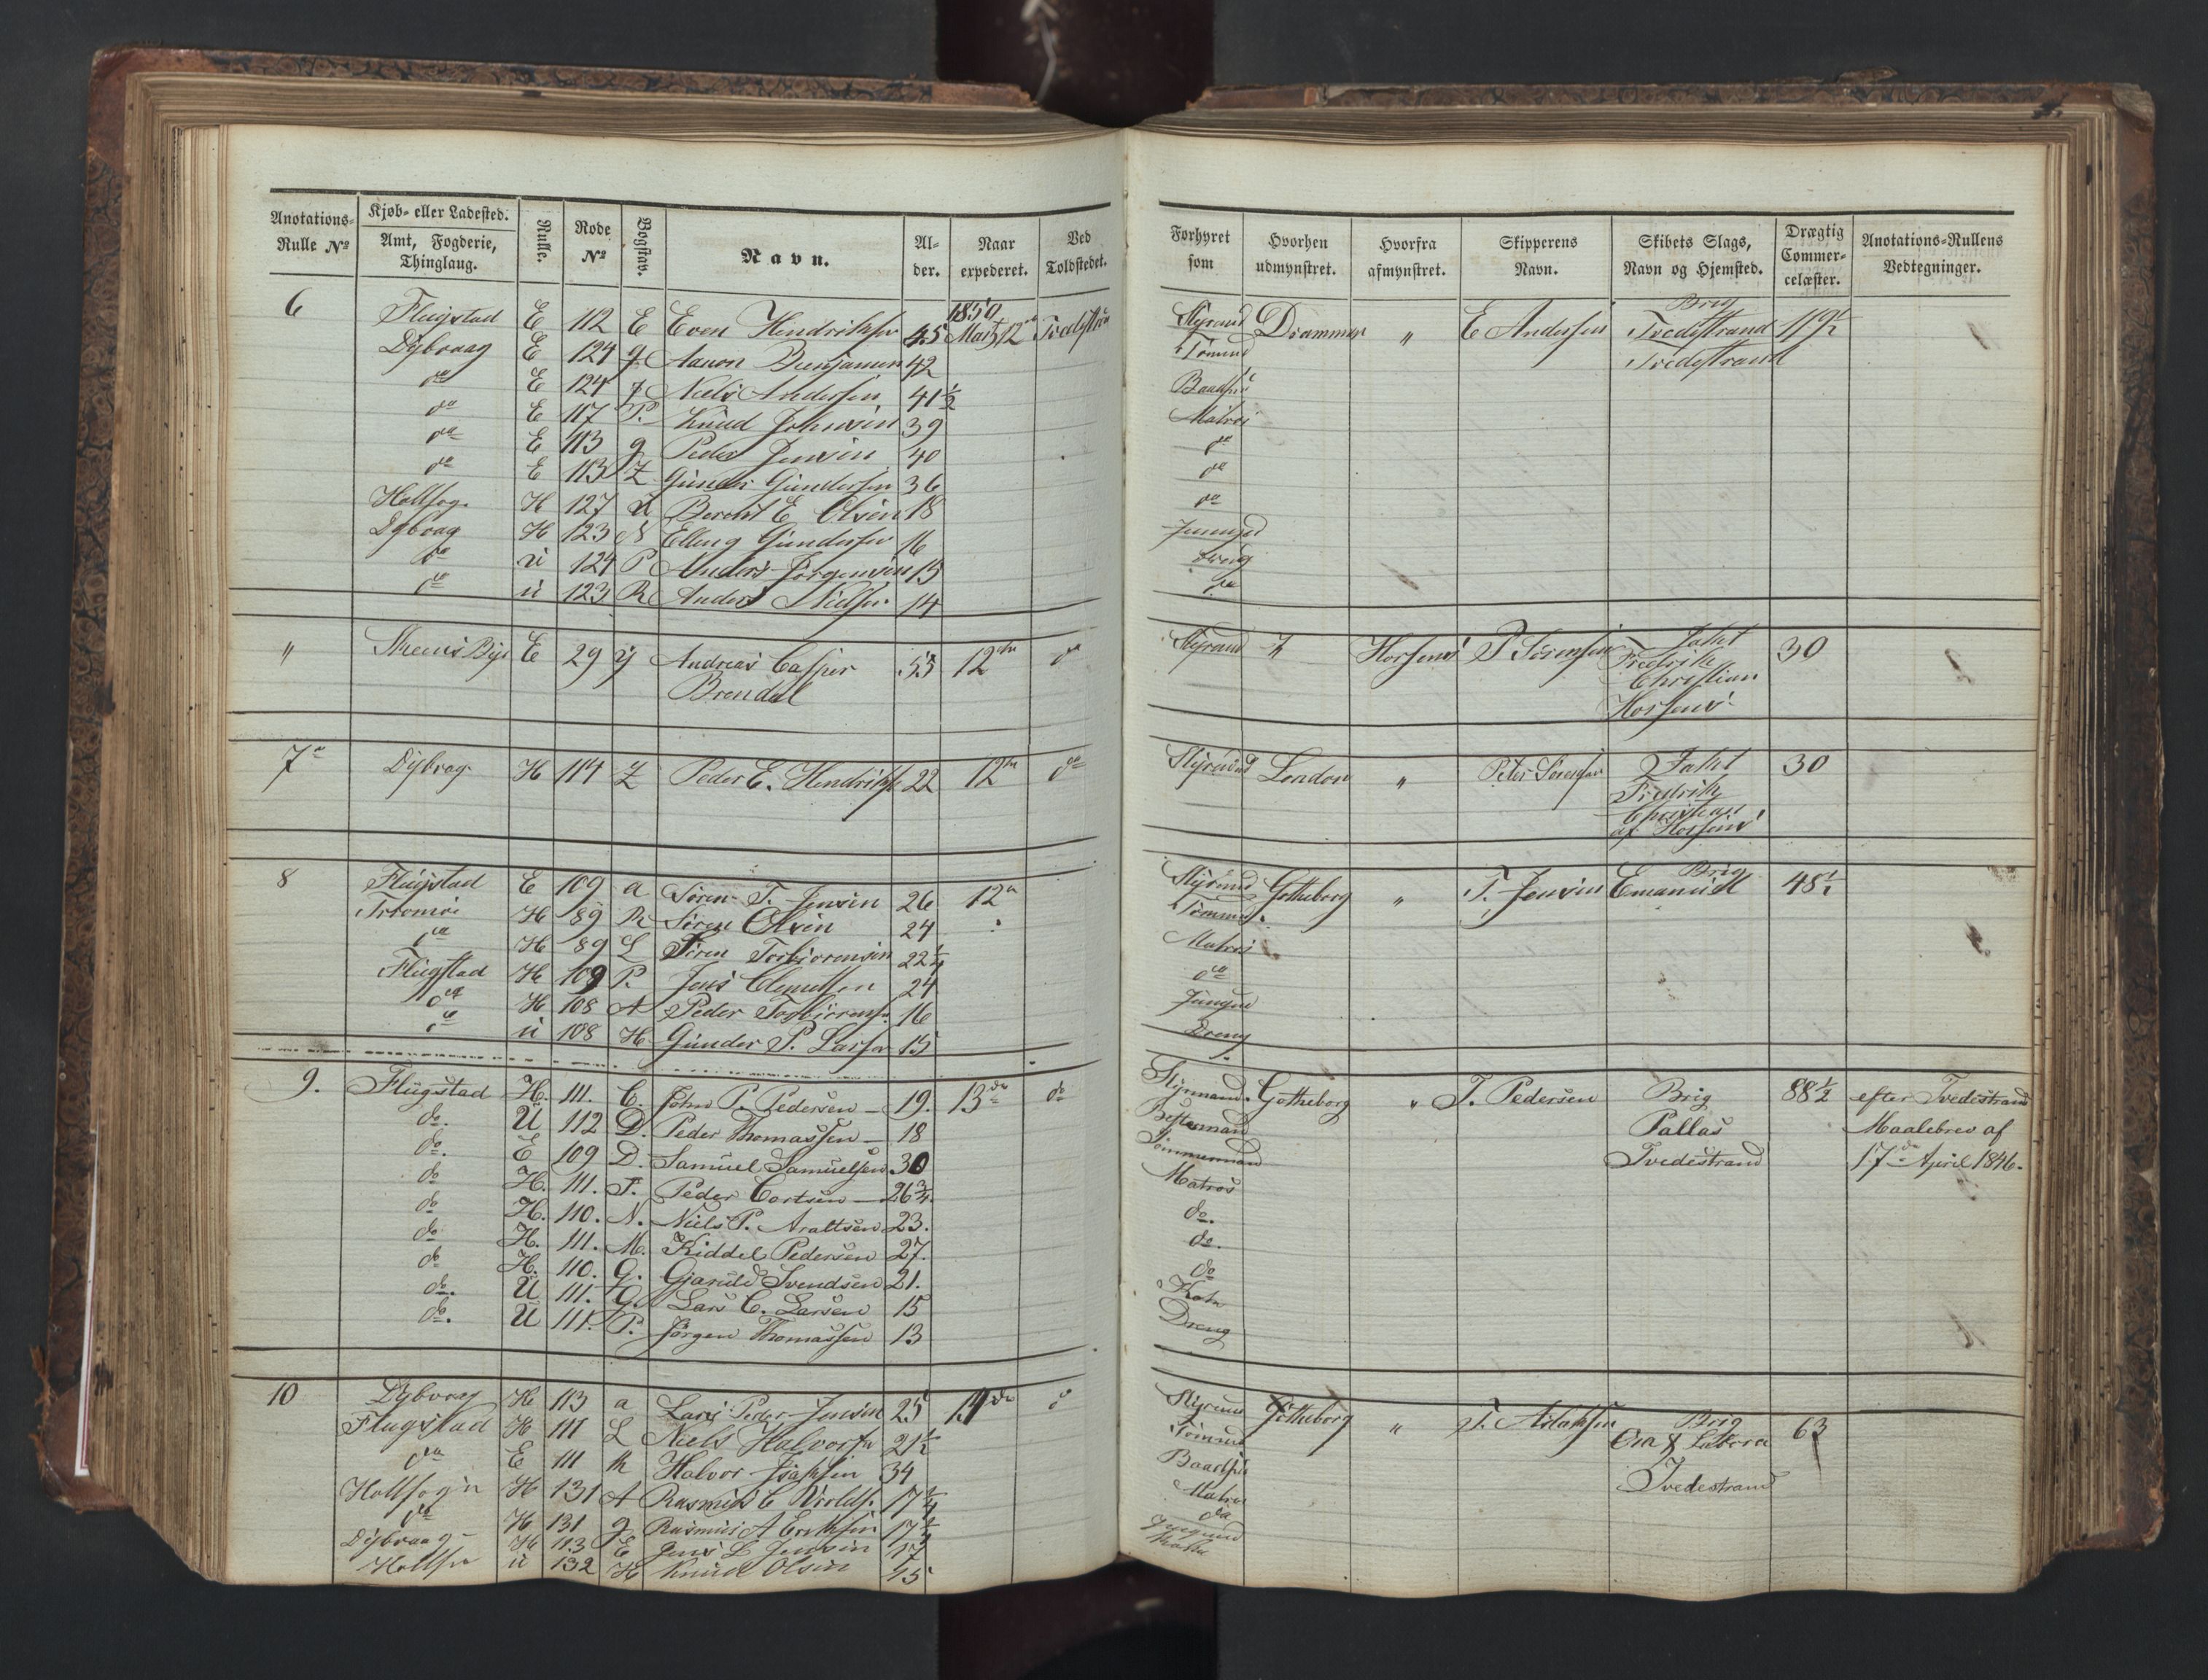 Anotations-Rulle №
Kjøb- eller Ladested. Amt, Fogderie, Thinglaug.
Rulle.
Rode №
Bogstav.
Navn.
Alder.
Naar expederet.
Ved Toldstedet.
6 Flugstad E 112 E Even Hendriksen 45 1850 Marts 12te Tvedestrand
Dybvaag E 124 g Aanon Benjamin 42
do E 124 Niels Andersen 41½
do E 117 P. Knud Johnsen 39
do E 113 g Peder Jensen 40
do E 113 Z Gunder Gundersen 36
Holtsog. H 127 Berent E Olsen 18
Dybvag H 123 N Elling Gundersen 16
do ü 124 P Anders Jörgensen 15
do ü 123 R Anders Nielsen 14
" E 29 y Andreas Casper 53 12te do
Brendal
7 Dybvag H 114 Z Peder E. Hendriks 22 12te do
8 Flugstad E 109 a Sören T. Jensen 26 12te
Tromøi H 89 R Sören Olsen 24
do H 89 L Sören Torbiörensen 22¼
Flugstad H 109 P. Jens Clemetsen 24
do H 108 A Peder Torbiörens. 16
do ü 108 H Gunder P. Larsen 15
9. Flügstad H. 111. C. John P. Pedersen 19. 13de do
do. U 112 D. Peder Thomassen 18
do. E 109 D. Samuel Samuelsen 30
do H. 111. T. Peder Cortsen 26¾
do H. 110. N. Niels P. Araltsen 23.
do H. 111. M. Kiddel Pedersen 27.
do H. 110. G. Gjaruld Svendsen 21.
do. U 111. G. Lars C. Larsen 15
do. U 111. P. Jörgen Thomassen 13
10 Dybvaag H 113 a Lars Peder Jensen 25 14de do
Flugstad H 111 L Niels Halvorsen 21½
do E 111 Halvor Isaksen 34
Holtsogn H 131 A Rasmus C 17¼
do H 131 g Rasmus A Eriksen 17¼
Dybvaag H 113 E Jens L Jensen 17
Holtso ü 132 H Knud Olsen 15
Forhyret som
Hvorhen udmynstret.
Hvorfra afmynstret.
Skipperens Navn.
Skibets Slags, Navn og Hjemsted.
Drægtig Commercelæster.
Anotations-Rullens Vedtegninger.
Styrmd Drammen " E Andersen Brig Tvedestrand 119½
Tömmd Tvedestrand
Baadsm
Matros
do
do
do
Jungmd
Dreng
do
Styrmd Horsens P Sörensen Jakt 30
Fredrik
Christian
Horsens
Styrmd London " Peter Sörensen Jakt 30
Fredrik
Christian
af Horsens
Styrmd Gotheborg " T. Jensen Brig Emanuel 48½
Tömmd
Matros
do
Jungmd
Dreng
Styrmand. Gotheborg " T. Pedersen Brig 88½ efter Tvedestrand
Bestemand Pallas Maalebrev af
Tömmermand Tvedestrand 17de April 1846.
Matros
do.
do.
do
Kok
Dreng
Styrmd Gotheborg " T. Aslaksen Brig 63
Tömmd Ora & Labora
Baadsm Tvedestrand
Matros
do
Jungmd
Kokke